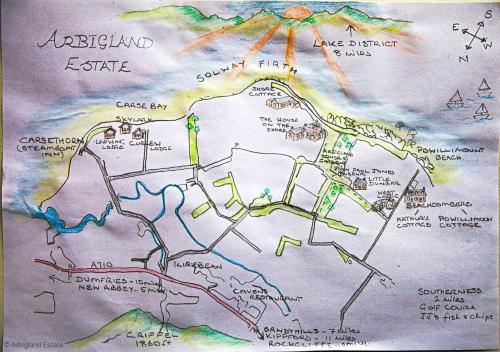 ARBIGLAND
ESTATE
LAKE DISTRICT
8 MILES
E
S
N
W
SOLWAY FIRTH
SHORE
COTTAGE
CARSE BAY
SKYLARK
THE HOUSE
ON THE
SHORE
CARSETHORN
(STEAMBOAT
INN)
LAPWING
LODGE
CURLEW
LODGE
POWILLIMOUNT
BEACH
ARBIGLAND
HOUSE &
GARDENS
JOHN PAUL JONES
MUSEUM
LITTLE
DUNBAR
WEST
LODGE
BEACHCOMBERS
ARTHUR'S
COTTAGE
POWILLIMOUNT
COTTAGE
A710
DUMFRIES - 10 MILES
NEW ABBEY - 5 MILES
KIRKBEAN
CAVENS
RESTAURANT
SOUTHERNESS
2 MILES
GOLF COURSE
JJ'S fish & chips
CRIFFEL
1860 FT
SANDYHILLS - 7 MILES
KIPPFORD - 11 MILES
ROCKCLIFFE
© Arbigland Estate